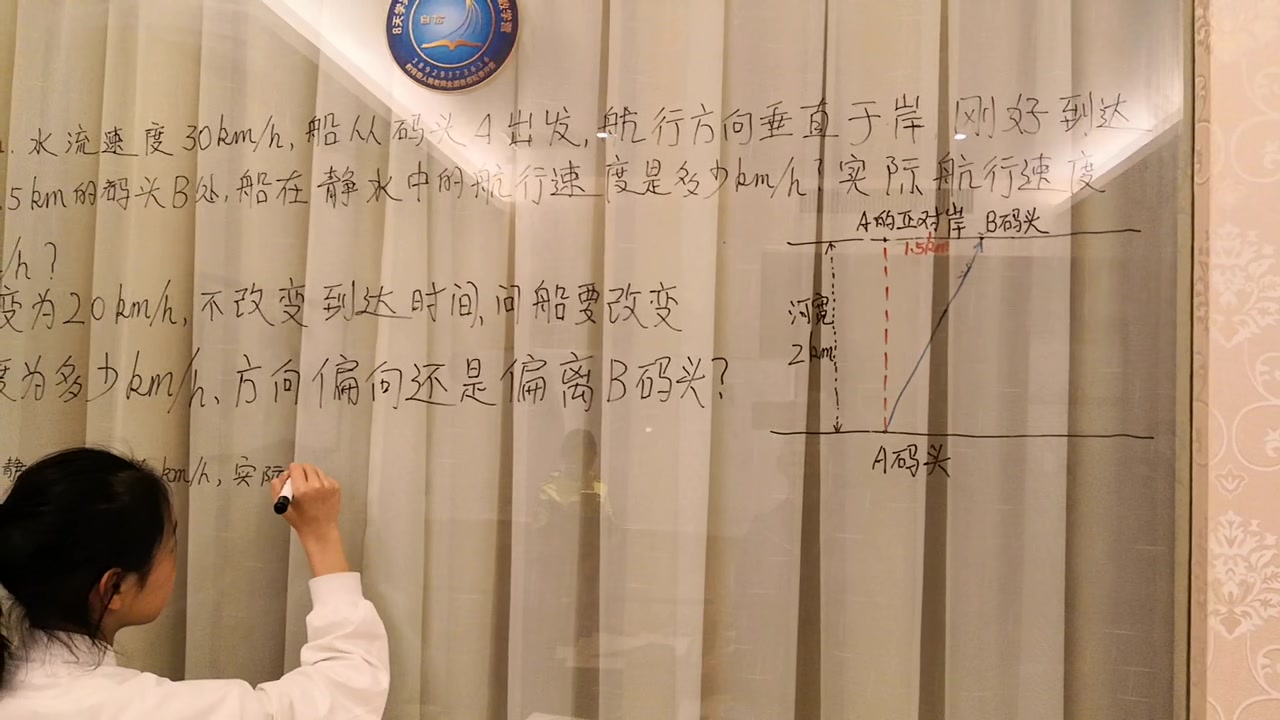 水流速度30km/h,船从码头A出发,航行方向垂直于岸,刚好到达
.5km的码头B处,船在静水中的航行速度是多少km/h?实际航行速度
/h?
度为20km/h,不改变到达时间,问船要改变
度为多少km/h、方向偏向还是偏离B码头?
静
km/h,实际
A的正对岸 B码头
1.5km
河宽
2km
A码头
8天学
数学营
18929373636